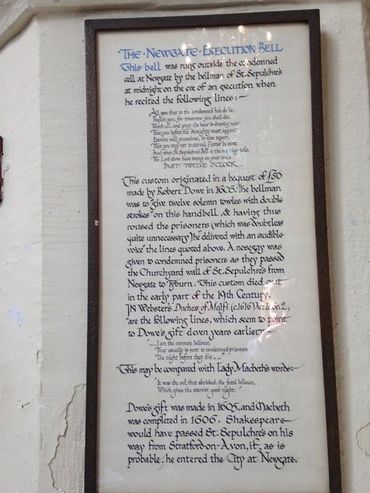 THE · NEWGATE · EXECUTION BELL
This bell was rung outside the condemned
cell at Newgate by the bellman of St. Sepulchre's
at midnight on the eve of an execution when
he recited the following lines:-
All you that in the condemned hole do lie,
Prepare you, for tomorrow you shall die.
Watch all, and pray: the hour is drawing near
That you before the Almighty must appear.
Examine well yourselves, in time repent,
That you may not to eternal flames be sent.
And when St. Sepulchre's Bell in the morning tolls,
The Lord above have mercy on your souls.
PAST TWELVE O'CLOCK
This custom originated in a bequest of £50
made by Robert Dowe in 1605. The bellman
was to give twelve solemn towles with double
strokes" on this handbell, & having thus
roused the prisoners (which was doubtless
quite unnecessary) he delivered with an audible
voice" the lines quoted above. A nosegay was
given to condemned prisoners as they passed
the Churchyard wall of St. Sepulchre's from
Newgate to Tyburn. This custom died out
in the early part of the 19th Century.
IN Webster's Duchess of Malfi (c.1616) Act 2,
are the following lines, which seem to point
to Dowe's gift eleven years earlier:-
".....I am the common bellman,
That usually is sent to condemned prisoners
The night before they die....."
This may be compared with Lady Macbeth's words:-
"It was the owl that shrieked, the fatal bellman,
Which gives the sternist good-night."
Dowe's gift was made in 1605, and Macbeth
was completed in 1606. Shakespeare
would have passed St. Sepulchre's on his
way from Stratford-on-Avon, if, as is
probable, he entered the City at Newgate.